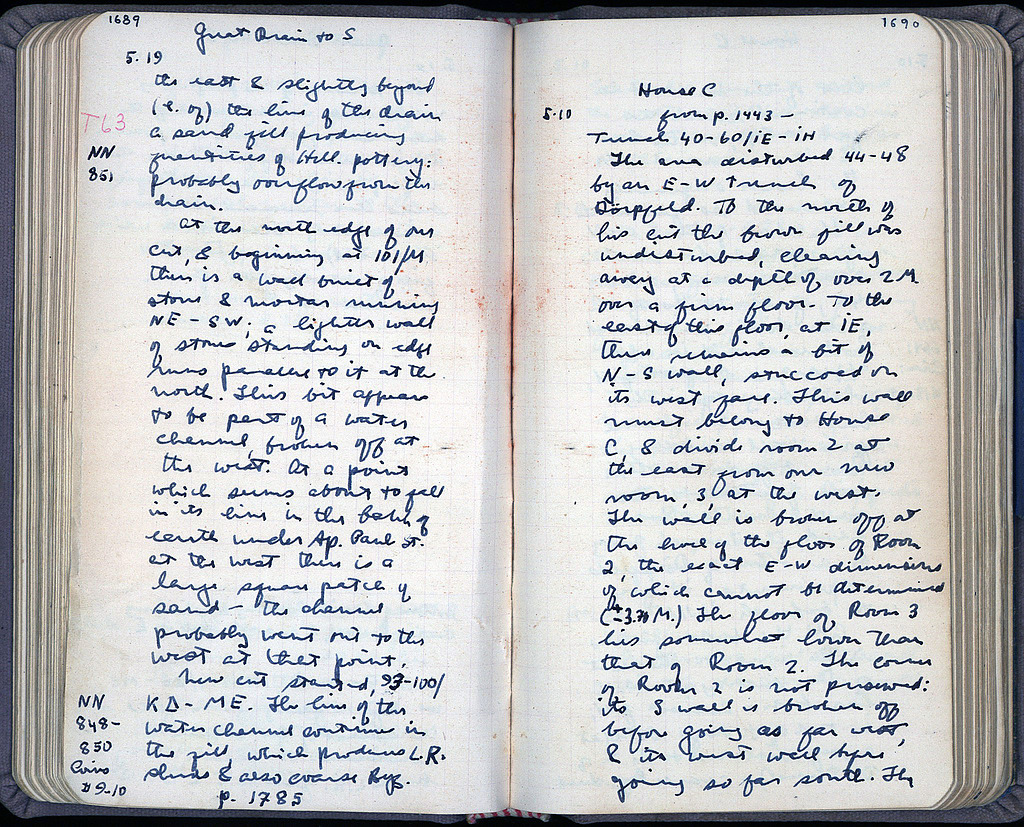 1689
Great Drain to S
5.19
the east & slightly beyond
(e. of) the line of the drain
T-63
a sand fill producing
NN
quantities of Hell. pottery:
851
probably overflow from the
drain.
At the north edge of our
cut, & beginning at 101/M
there is a wall built of
stone & mortar running
NE-SW; a lighter wall
of stones standing on edge
runs parallel to it at the
north. This bit appears
to be part of a water
channel, broken off at
the west. At a point
which seems about to fall
in its line in the balk of
earth under Ap. Paul St.
at the west there is a
large square patch of
sand — the channel
probably went out to the
west at that point.
New cut started, 93-100/
NN
ΚΔ - ΜΕ. The line of the
848-
water channel continues in
850
the fill, which produces L.R.
Coins
sherds & also coarse Byz.
#9-10
p. 1785
1690
House C
5.10
from p. 1443 —
Trench 40-60/ΙΕ-ΙΗ
The area disturbed 44-48
by an E-W trench of
Dörpfeld. To the north of
his cut the brown fill was
undisturbed, clearing
away at a depth of over 2 M.
over a firm floor. To the
east of this floor, at ΙΕ,
there remains a bit of
N-S wall, stuccoed on
its west face. This wall
must belong to House
C, & divide room 2 at
the east from our new
room, 3, at the west.
The wall is broken off at
the level of the floor of Room
2, the exact E-W dimensions
of which cannot be determined
M.) The floor of Room 3
lies somewhat lower than
that of Room 2. The corner
of Room 2 is not preserved:
its S wall is broken off
before going as far west,
& its west wall before
going so far south. The